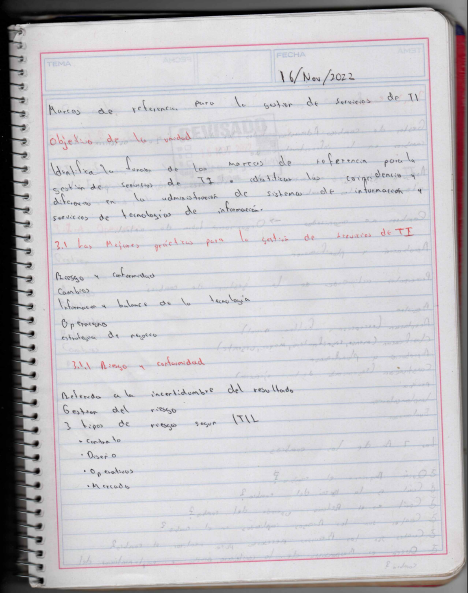 TEMA
FECHA
16/Nov/2022
Marcos de referencia para la gestion de servicios de TI
Objetivo de la unidad
Identifica la forma de los marcos de referencia para la
gestion de servicios de TI e identificar las
diferencias en la administracion de sistemas de informacion y
servicios de tecnologias de informacion.
3.1 Las Mejores practicas para la gestion de servicios de TI
Riesgo y conformidad
Cambios
Informacion y balance de la tecnologia
Operaciones
estrategia de negocio
3.1.1 Riesgo y conformidad
Referido a la incertidumbre del resultado
Gestion del riesgo
3 tipos de riesgo segun ITIL
• Contrato
• Diseño
• Operativos
• Mercado